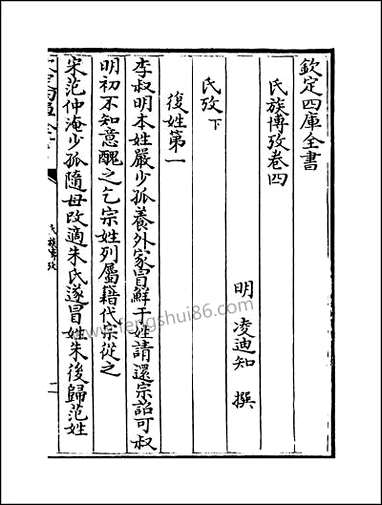 欽定四庫全書
氏族博攷卷四
明 凌迪知 撰
氏攷下
復姓第一
李叔明本姓嚴少孤養外家冒鮮于姓請還宗詔可叔
明初不知意醜之乞宗姓列屬籍代宗從之
宋范仲淹少孤隨母改適朱氏遂冒姓朱後歸范姓
氏族博攷
www.fengshui86.com